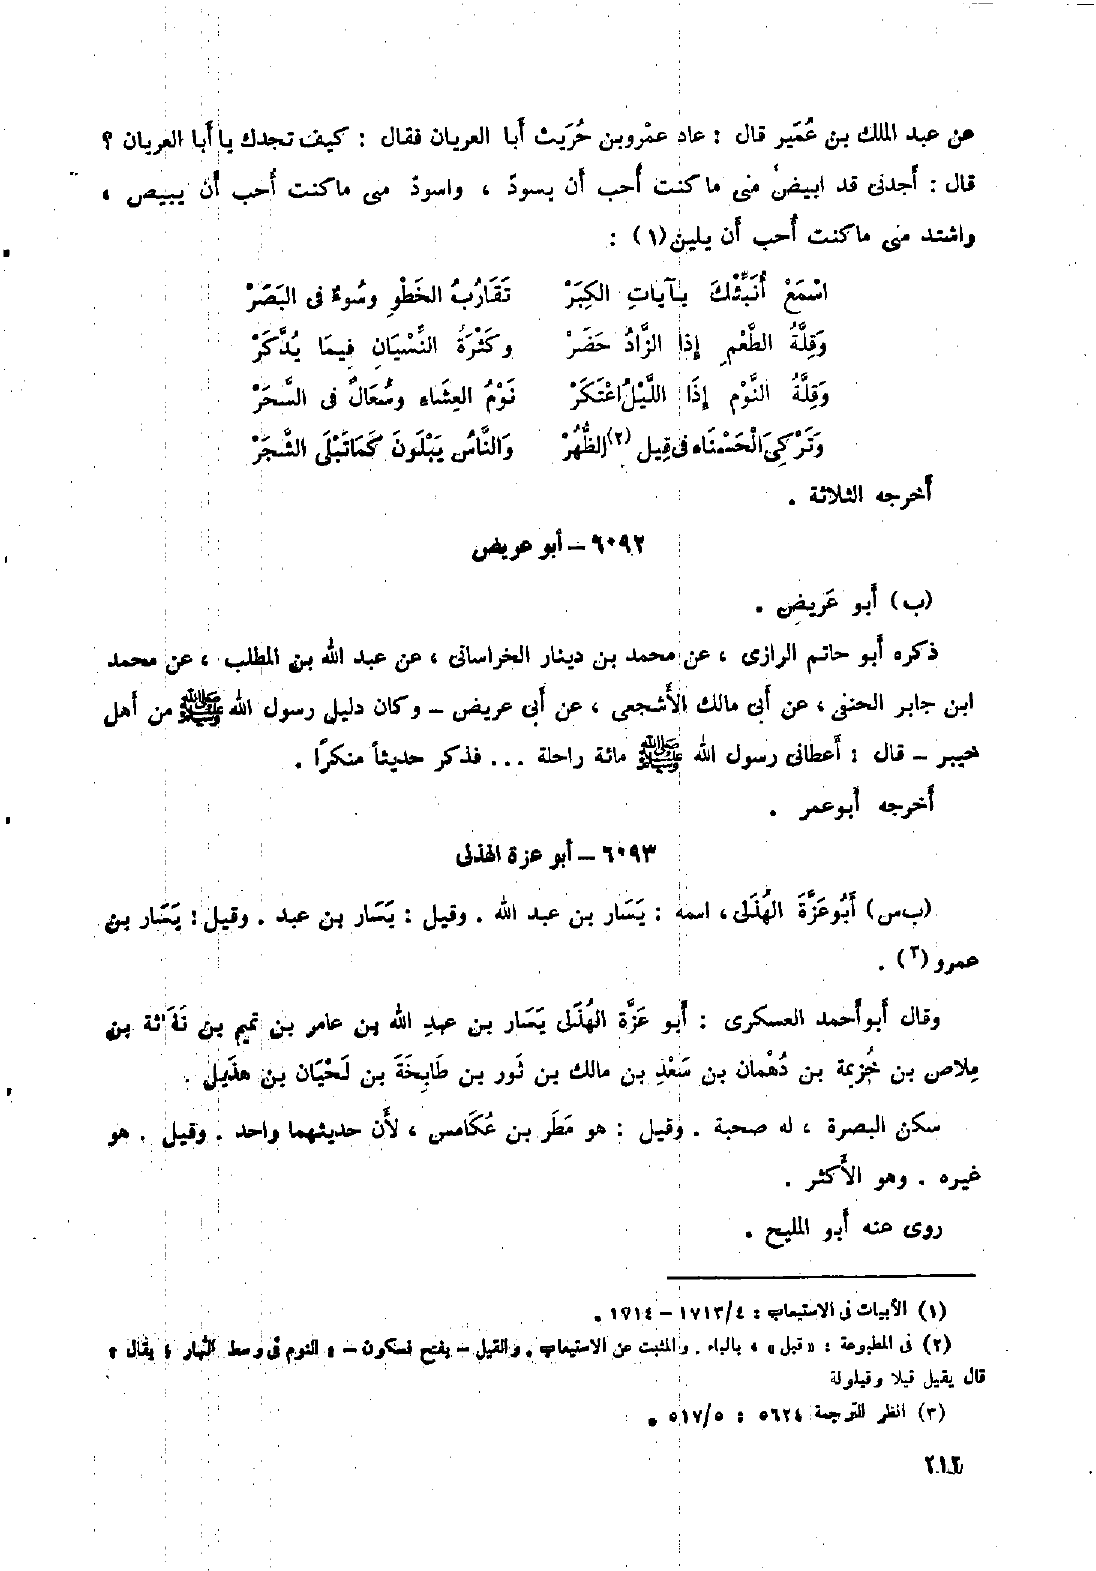 عن عبد الملك بن عُمَير قال : عاد عمْروبن حُرَيث أَبا العريان فقال : كيف تجدك يا أَبا العريان ؟
قال : أَجدنى قد ابيض منى ما كنت أُحب أن يسودّ ، واسودّ منى ماكنت أُحب أَن يبيض ،
واشتد منى ماكنت أُحب أَن يلين(١) :
اسْمَعْ أُنَبِّئْكَ بآياتِ الكِبَرْ تَقَارُبُ الخَطْوِ وسُوءٌ فى البَصَرْ
وَقِلَّةُ الطَّعْمِ إِذَا الزَّادُ حَضَرْ وكَثْرَةُ النِّسْيَانِ فِيمَا يُدَّكَرْ
وَقِلَّةُ النَّوْم إِذَا اللَّيْلُ اعْتَكَرْ نَوْمُ العِشَاءِ وسُعَالٌ فى السَّحَرْ
وَتَرْكِىَ الْحَسْنَاء فى قِيل (٢) الظُّهُرْ وَالنَّاسُ يَبْلَونَ كَمَا تَبْلَى الشَّجَرْ
أَخرجه الثلاثة .
٦٠٩٢ – أَبو عريض
(ب) أَبو عَرِيض .
ذكره أَبو حاتم الرازى ، عن محمد بن دينار الخراسانى ، عن عبد الله بن المطلب ، عن محمد
ابن جابر الحنفى ، عن أَبى مالك الأَشجعى ، عن أَبى عريض – وكان دليل رسول الله ﷺ من أَهل
خيبر – قال : أَعطانى رسول الله ﷺ مائة راحلة ... فذكر حديثاً منكرًا .
أَخرجه أَبوعمر .
٦٠٩٣ – أَبو عزة الهذلى
(ب س) أَبُوعَزَّةَ الهُذَلى ، اسمه : يَسَار بن عبد الله . وقيل : يَسَار بن عبد . وقيل : يَسَار بن
عمرو (٣) .
وقال أَبوأَحمد العسكرى : أَبو عَزَّة الهُذَلى يَسَار بن عبدِ الله بن عامر بن تميم بن نَفَاثة بن
مِلاص بن خُزيمة بن دُهْمان بن سَعْدِ بن مالك بن ثَور بن طَابِخَةَ بن لَحْيَان بن هذَيل .
سكن البصرة ، له صحبة . وقيل : هو مَطَر بن عُكَامس ، لأَن حديثهما واحد . وقيل . هو
غيره . وهو الأَكثر .
روى عنه أَبو المليح .
(١) الأبيات فى الاستيعاب : ١٧١٣/٤ – ١٧١٤ .
(٢) فى المطبوعة : « قبل » ، بالباء . والمثبت عن الاستيعاب . والقيل – بفتح فسكون – : النوم فى وسط النهار ، يقال :
قال يقيل قيلا وقيلولة
(٣) انظر الترجمة ٥٦٢٤ : ٥١٧/٥ .
٢١٢